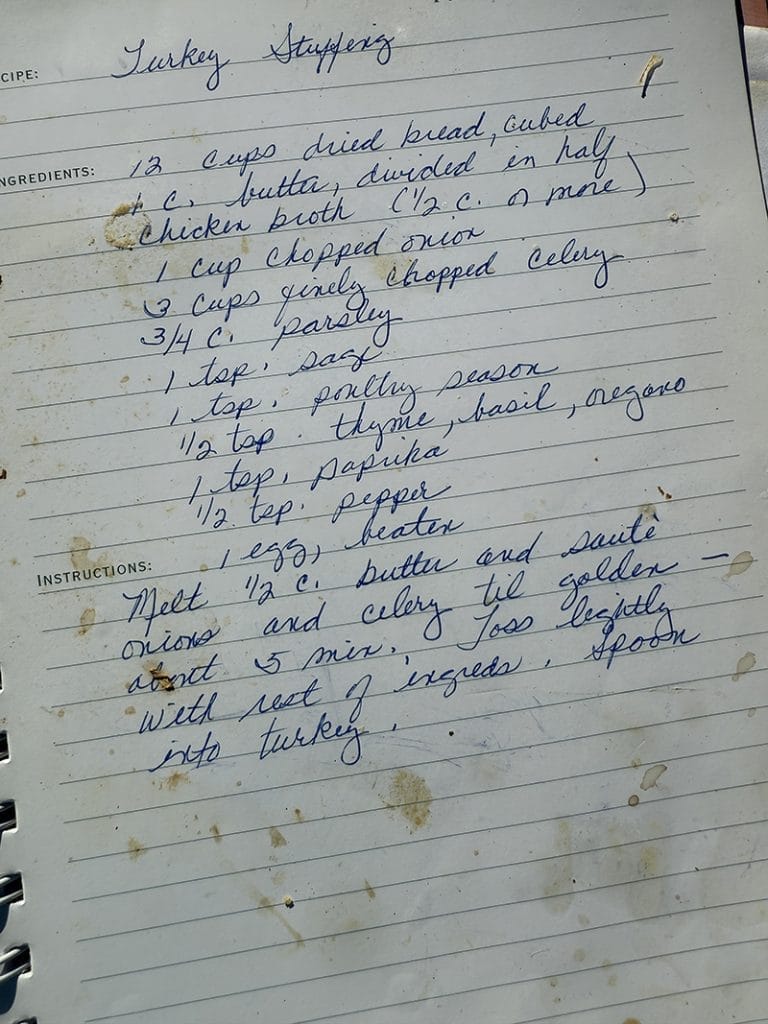 RECIPE: Turkey Stuffing
INGREDIENTS: 12 cups dried bread, cubed
1 c. butter, divided in half
chicken broth (1/2 c. or more)
1 cup chopped onion
3 cups finely chopped celery
3/4 c. parsley
1 tsp. sage
1 tsp. poultry season
1/2 tsp. thyme, basil, oregano
1 tsp. paprika
1/2 tsp. pepper
1 egg, beaten
INSTRUCTIONS: Melt 1/2 c. butter and sauté
onions and celery til golden –
about 5 min. Toss lightly
with rest of ingreds. Spoon
into turkey.